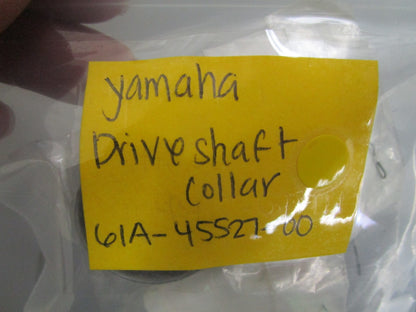 yamaha
Driveshaft
collar
61A-45527-00